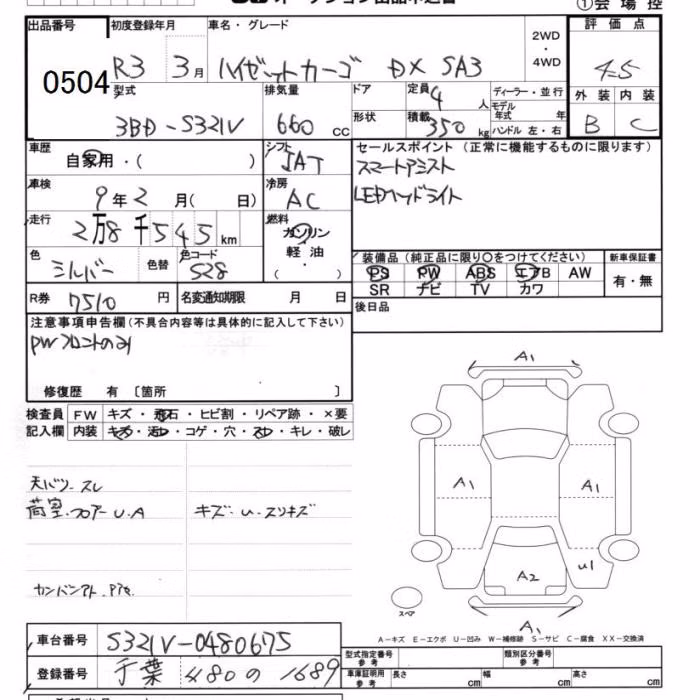 ①会場控
出品番号 初度登録年月 車名・グレード 2WD・4WD 評価点
0504 R3 3月 ハイゼットカーゴ DX SA3 4.5
型式 排気量 ドア 定員 4人 ディーラー・並行 外装 内装
3BD-S321V 660cc 形状 積載 350kg モデル年式 年 ハンドル 左・右 B C
車歴 自家用・( ) シフト IAT セールスポイント (正常に機能するものに限ります)
スマートアシスト
車検 9年2月( 日) 冷房 AC LEDヘッドライト
走行 2万8千545km 燃料 ガソリン 軽油 ( )
色 シルバー 色替 色コード S28 装備品 (純正品に限り○をつけてください) 新車保証書
PS PW ABS エアB AW 有・無
SR ナビ TV カワ
R券 7510円 名変通知期限 月 日 後日品
注意事項申告欄(不具合内容等は具体的に記入して下さい)
PWフロントのみ
修復歴 有 〔箇所 〕
検査員 FW キズ・飛石・ヒビ割・リペア跡・×要
記入欄 内装 キズ・汚レ・コゲ・穴・スレ・キレ・破レ
A1
天バリ.スレ
A1 A1
荷室.フロアーU.A キズ・U・スリキズ
U1
A2
カンバンアト.Pｱﾄ.
スペア
A1
A−キズ E−エクボ U−凹み W−補修跡 S−サビ C−腐食 XX−交換済
車台番号 S321V-0480675
型式指定番号 参考 類別区分番号 参考
登録番号 千葉 480 の 1689
車庫証明用 参考 長さ cm 幅 cm 高さ cm